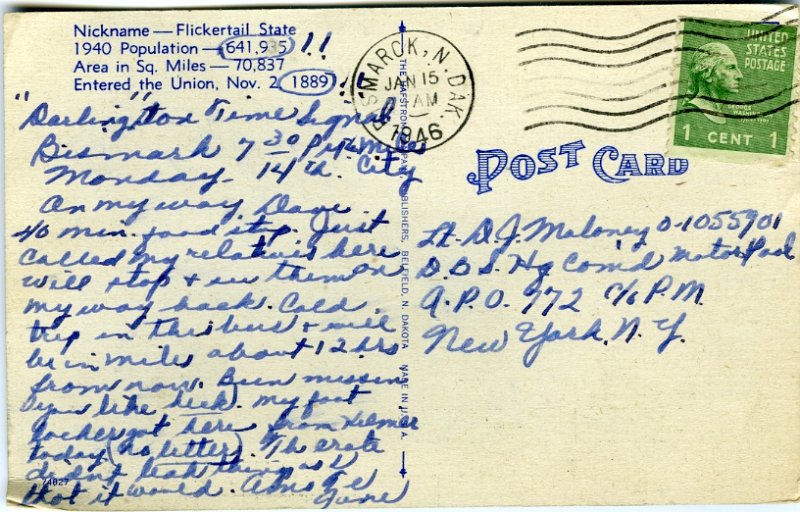 Nickname — Flickertail State
1940 Population — 641,935 !!
Area in Sq. Miles — 70,837
Entered the Union, Nov. 2 1889 !!
"Darlington" Time Signal
Bismark 7 30 P.M. Miles
Monday - 14 th. City
On my way Dave
40 min. food stop. Just
called my relatives here
will stop + see them on
my way back. Cold
trip in this bus + will
be in Miles about 12 hrs
from now. Been missin
you like heck. My foot
locker got here from Hilmer
today (no letter). Th crate
didnt leak things as I
thot it would.
Gune
74827
THE HAFSTROM COMPANY, PUBLISHERS, BELFIELD, N. DAKOTA MADE IN U.S.A.
BISMARCK, N. DAK.
JAN 15
AM
1946
UNITED STATES POSTAGE
GEORGE WASHINGTON
1 CENT 1
POST CARD
Lt. D. J. Maloney O-1055901
D.B.S. Hq Com'd Motor Pool
A.P.O. 772 c/o P.M
New York, N.Y.